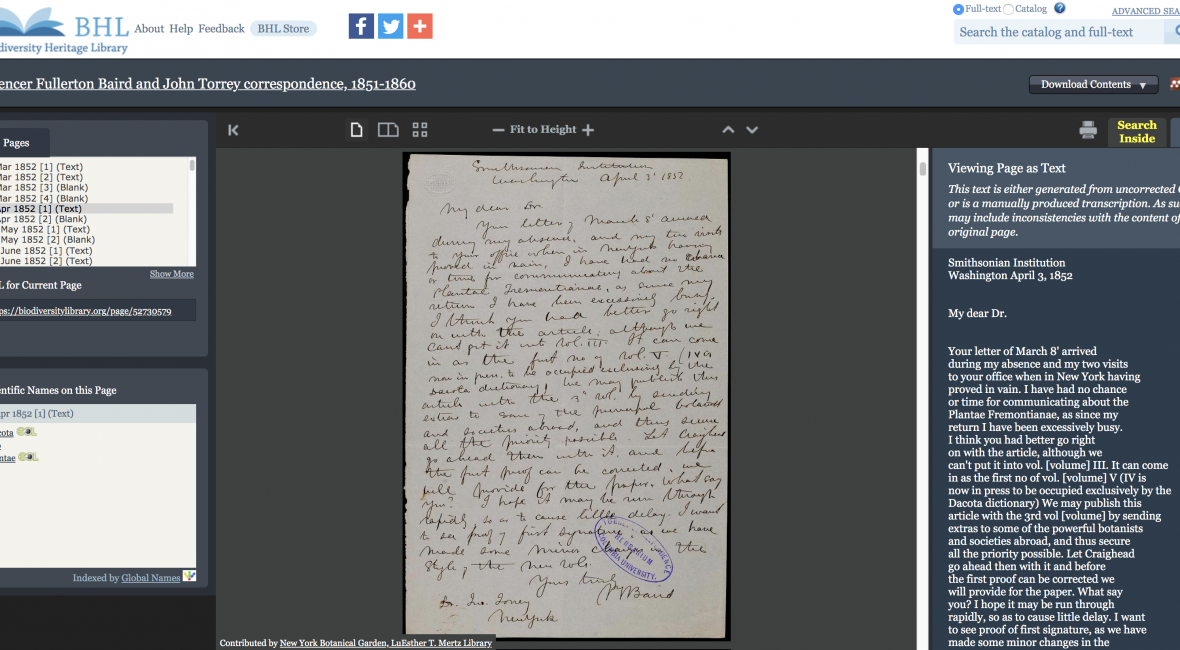 BHL
diversity Heritage Library
About Help Feedback BHL Store
Full-text Catalog
ADVANCED SEA
Search the catalog and full-text
encer Fullerton Baird and John Torrey correspondence, 1851-1860
Download Contents
Pages
Mar 1852 [1] (Text)
Mar 1852 [2] (Text)
Mar 1852 [3] (Blank)
Mar 1852 [4] (Blank)
Apr 1852 [1] (Text)
Apr 1852 [2] (Blank)
May 1852 [1] (Text)
May 1852 [2] (Blank)
June 1852 [1] (Text)
June 1852 [2] (Text)
Show More
L for Current Page
ps://biodiversitylibrary.org/page/52730579
entific Names on this Page
Apr 1852 [1] (Text)
cota
ntae
Indexed by Global Names
Fit to Height
Smithsonian Institution
Washington April 3' 1852
My dear Dr.
Your letter of March 8' arrived
during my absence, and my two visits
to your office when in New York having
proved in vain, I have had no chance
or time for communicating about the
Plantae Fremontianae, as since my
return I have been excessively busy.
I think you had better go right
on with the article, although we
cant put it into vol. III. It can come
in as the first no of vol. V (IV is
now in press, to be occupied exclusively by the
Dacota dictionary) We may publish this
article with the 3d vol. by sending
extras to some of the principal botanists
and societies abroad, and thus secure
all the priority possible. Let Craighead
go ahead then with it and before
the first proof can be corrected, we
will provide for the paper. What say
you? I hope it may be run through
rapidly, so as to cause little delay. I want
to see proof of first signature, as we have
made some minor changes in the
style of the new vols.
Yours truly
Baird
Dr. Jno. Torrey
New York
HERBARIUM
COLUMBIA UNIVERSITY.
Contributed by New York Botanical Garden, LuEsther T. Mertz Library
Search
Inside
Viewing Page as Text
This text is either generated from uncorrected
or is a manually produced transcription. As su
may include inconsistencies with the content of
original page.
Smithsonian Institution
Washington April 3, 1852
My dear Dr.
Your letter of March 8' arrived
during my absence and my two visits
to your office when in New York having
proved in vain. I have had no chance
or time for communicating about the
Plantae Fremontianae, as since my
return I have been excessively busy.
I think you had better go right
on with the article, although we
can't put it into vol. [volume] III. It can come
in as the first no of vol. [volume] V (IV is
now in press to be occupied exclusively by the
Dacota dictionary) We may publish this
article with the 3rd vol [volume] by sending
extras to some of the powerful botanists
and societies abroad, and thus secure
all the priority possible. Let Craighead
go ahead then with it and before
the first proof can be corrected we
will provide for the paper. What say
you? I hope it may be run through
rapidly, so as to cause little delay. I want
to see proof of first signature, as we have
made some minor changes in the